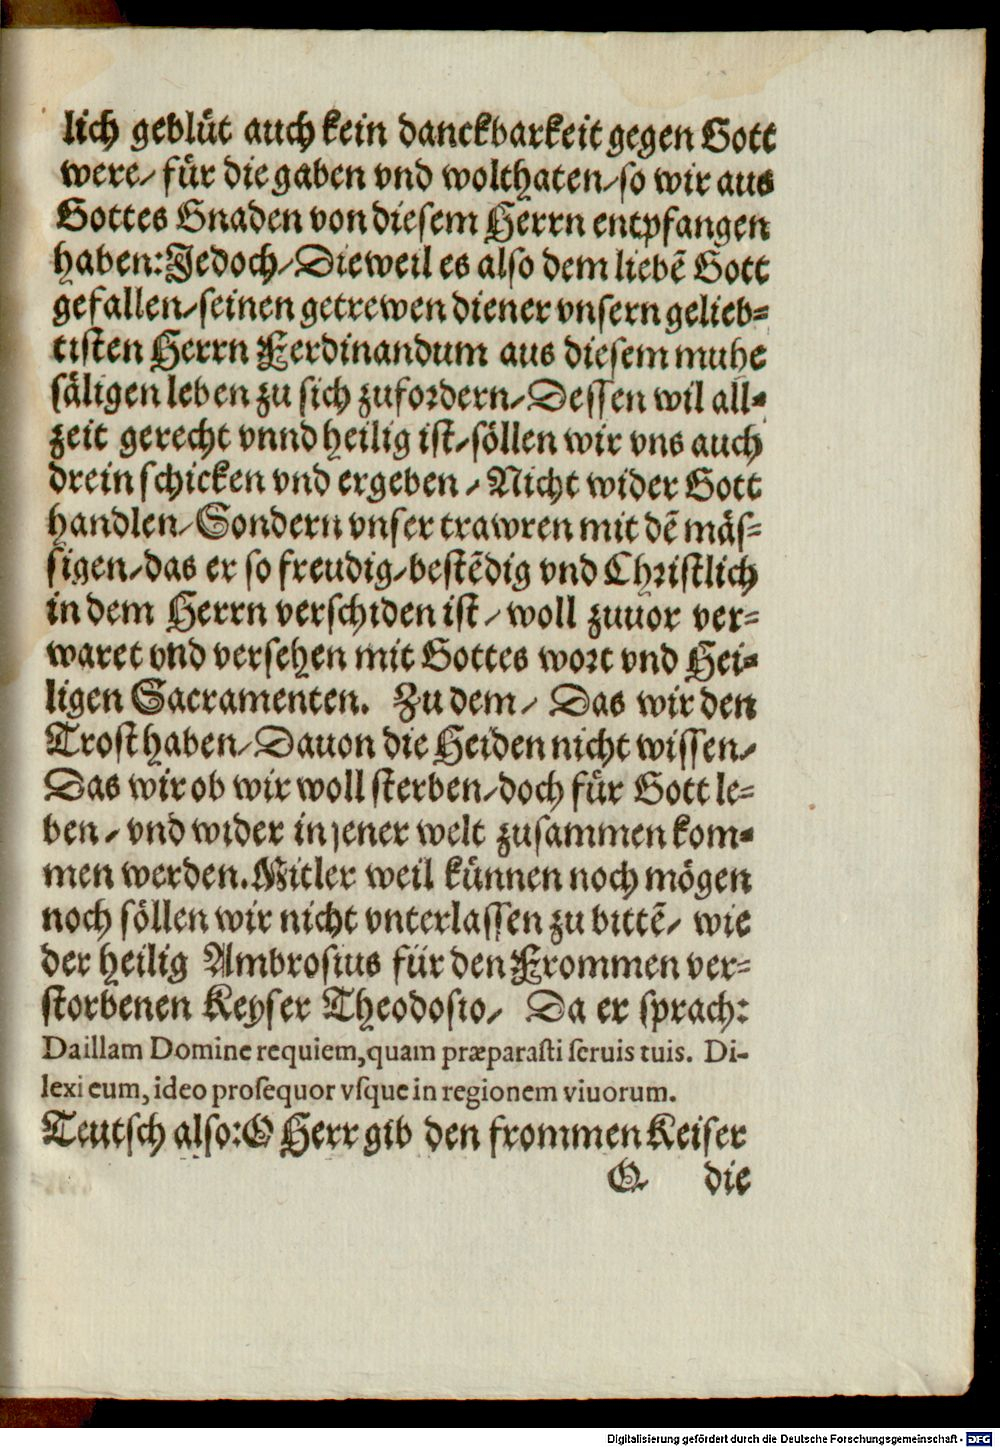 lich geblüt auch kein danckbarkeit gegen Gott
were/ für die gaben vnd wolthaten/ so wir aus
Gottes Gnaden von diesem Herrn entpfangen
haben: Jedoch/ Dieweil es also dem liebẽ Gott
gefallen/ seinen getrewen diener vnsern gelieb=
tisten Herrn Ferdinandum aus diesem muhe
säligen leben zu sich zufordern/ Dessen wil all=
zeit gerecht vnnd heilig ist/ söllen wir vns auch
drein schicken vnd ergeben / Nicht wider Gott
handlen/ Sondern vnser trawren mit dẽ mäs=
sigen/ das er so freudig/ bestẽdig vnd Christlich
in dem Herrn verschiden ist / woll zuuor ver=
waret vnd versehen mit Gottes wort vnd Hei=
ligen Sacramenten. Zu dem/ Das wir den
Trost haben/ Dauon die Heiden nicht wissen/
Das wir ob wir woll sterben/ doch für Gott le=
ben / vnd wider in jener welt zusammen kom=
men werden. Mitler weil künnen noch mögen
noch söllen wir nicht vnterlassen zu bittẽ/ wie
der heilig Ambrosius für den Frommen ver=
storbenen Keyser Theodosio/ Da er sprach:
Da illam Domine requiem, quam præparasti seruis tuis. Di-
lexi eum, ideo prosequor vsque in regionem viuorum.
Teutsch also: O Herr gib den frommen Keiser
G die
Digitalisierung gefördert durch die Deutsche Forschungsgemeinschaft - DFG